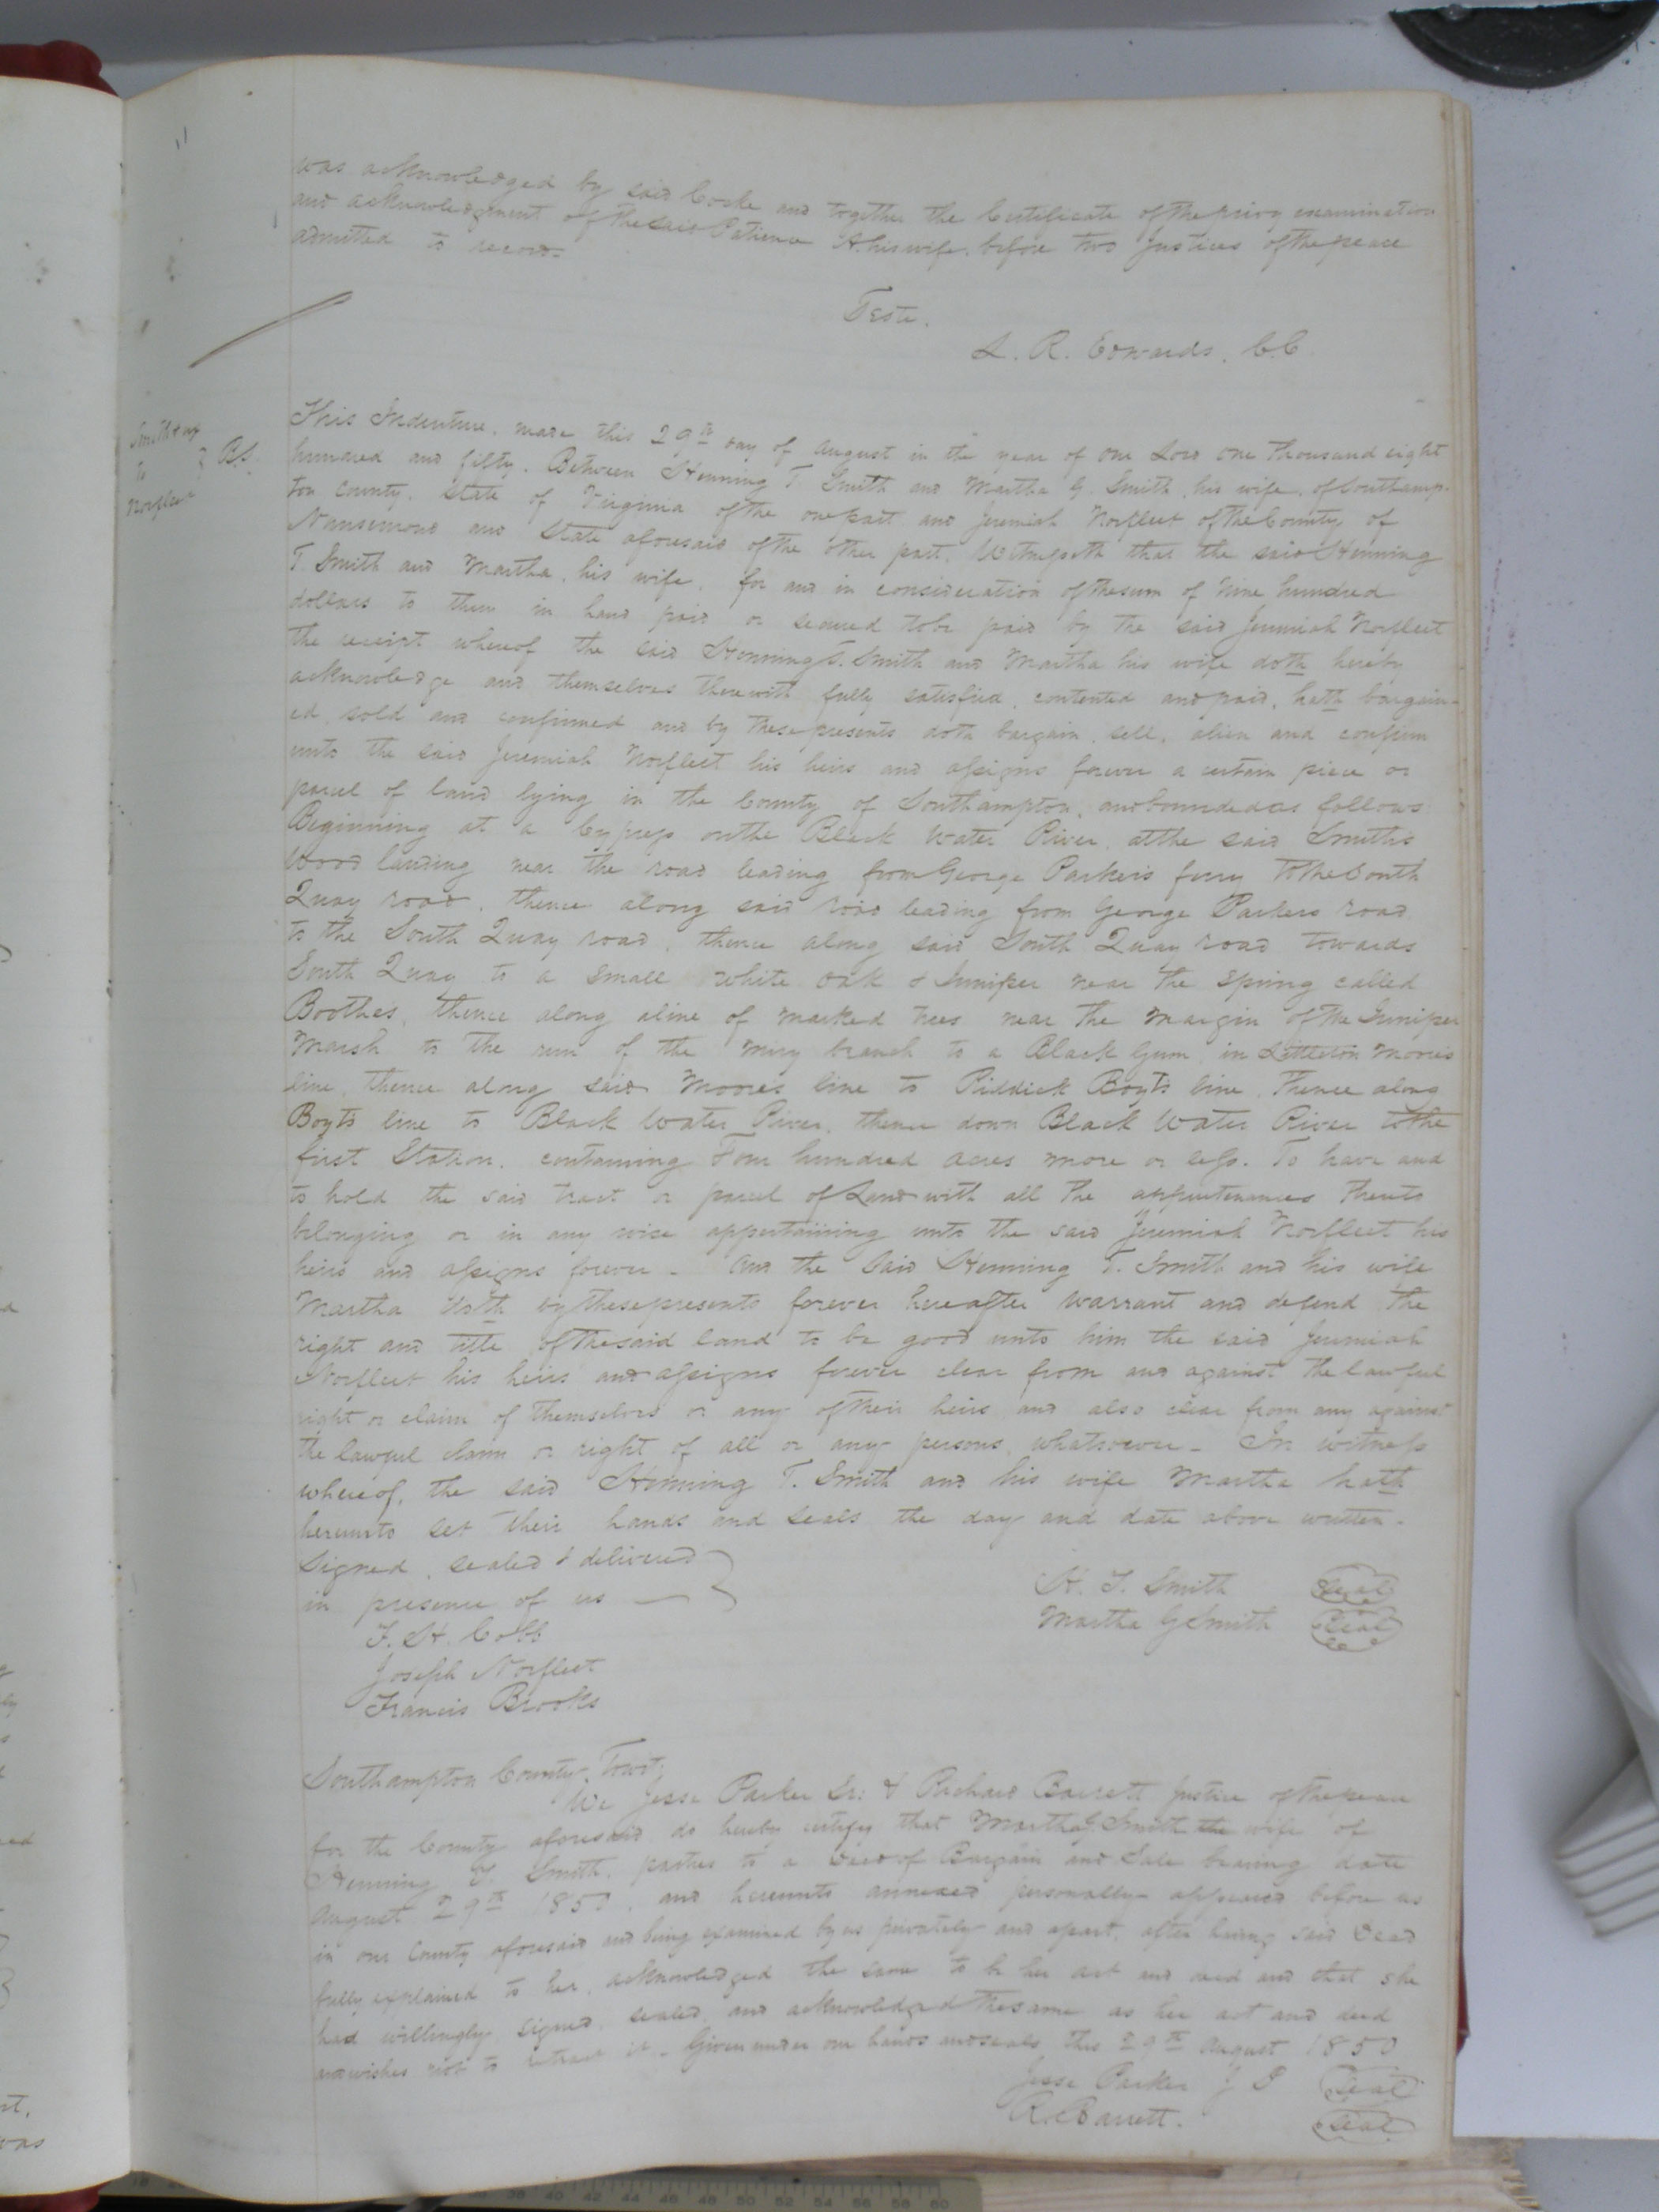 was acknowledged by said Cocke and together the Certificate of the privy examination
and acknowledgment of the said Patience A. his wife, before two Justices of the peace
admitted to record.
Teste.
L. R. Edwards, C.C.
Smith & ux
to } B.S.
Norfleet
This Indenture, made this 29th day of August in the year of our Lord one thousand eight
hundred and fifty. Between Henning T. Smith and Martha G. Smith, his wife, of Southamp-
ton County, State of Virginia of the one part and Jeremiah Norfleet of the County of
Nansemond and State aforesaid of the other part. Witnesseth that the said Henning
T. Smith and Martha, his wife, for and in consideration of the sum of Nine hundred
dollars to them in hand paid or secured to be paid by the said Jeremiah Norfleet
the receipt whereof the said Henning T. Smith and Martha his wife doth hereby
acknowledge and themselves therewith fully satisfied, contented and paid, hath bargain-
ed, sold and confirmed and by these presents doth bargain, sell, alien and confirm
unto the said Jeremiah Norfleet his heirs and assigns forever a certain piece or
parcel of land lying in the County of Southampton, and bounded as follows
Beginning at a Cypress on the Black Water River, at the said Smith's
Wood landing near the road leading from George Parker's ferry to the South
Quay road, thence along said road leading from George Parkers road
to the South Quay road, thence along said South Quay road towards
South Quay to a small white oak & Juniper near the Spring called
Boothes, thence along a line of marked trees near the margin of the Juniper
Marsh to the run of the miry branch to a Black Gum in Littleton Moore's
line, thence along said Moore's line to Riddick Boyt's line, Thence along
Boyt's line to Black Water River, thence down Black Water River to the
first Station, containing Four hundred acres more or less. To have and
to hold the said tract or parcel of Land with all the appurtenances thereto
belonging or in any wise appertaining unto the said Jeremiah Norfleet his
heirs and assigns forever - And the Said Henning T. Smith and his wife
Martha doth by these presents forever hereafter warrant and defend the
right and title of the said land to be good unto him the said Jeremiah
Norfleet his heirs and assigns forever clear from and against the lawful
right or claim of themselves or any of their heirs and also clear from any against
the lawful claim or right of all or any persons, whatsoever - In witness
whereof, the said Henning T. Smith and his wife Martha hath
hereunto set their hands and seals the day and date above written.
Signed, sealed & delivered }
in presence of us — }
H. T. Smith Seal
F. H. Cobb
Martha G Smith Seal
Joseph Norfleet
Francis Brooks
Southampton County, Towit;
We Jesse Parker Sr: & Richard Barrett Justice of the peace
for the County aforesaid do hereby certify that Martha G. Smith the wife of
Henning T. Smith, parties to a Deed of Bargain and Sale bearing date
August 29th 1850, and hereunto annexed personally appeared before us
in our County aforesaid and being examined by us privately and apart, after having said Deed
fully explained to her, acknowledged the same to be her act and deed and that she
had willingly signed, sealed, and acknowledged the same as her act and deed
and wishes not to retract it - Given under our hands and seals this 29th August 1850
Jesse Parker J P Seal
R. Barrett. Seal